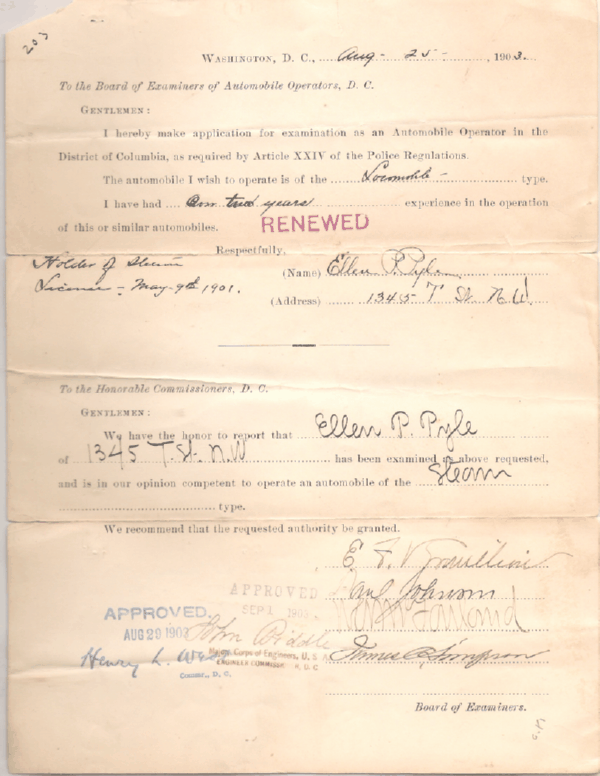 203
WASHINGTON, D. C., Aug- 25- , 1903.
To the Board of Examiners of Automobile Operators, D. C.
GENTLEMEN:
I hereby make application for examination as an Automobile Operator in the
District of Columbia, as required by Article XXIV of the Police Regulations.
The automobile I wish to operate is of the Locomobile- type.
I have had two years experience in the operation
of this or similar automobiles.
RENEWED
Respectfully,
Holder of Steam
License - May-9th 1901.
(Name) Ellen P. Pyle
(Address) 1345 T St N.W.
To the Honorable Commissioners, D. C.
GENTLEMEN:
We have the honor to report that Ellen P. Pyle
of 1345 T. St. N.W has been examined as above requested,
and is in our opinion competent to operate an automobile of the Steam
type.
We recommend that the requested authority be granted.
Paul Johnson
James C. Simpson
APPROVED
SEP 1 1903
John Biddle
Major, Corps of Engineers, U. S. A.
ENGINEER COMMISSR. D. C.
APPROVED.
AUG 29 1903
Henry L. West
Commr., D. C.
Board of Examiners.